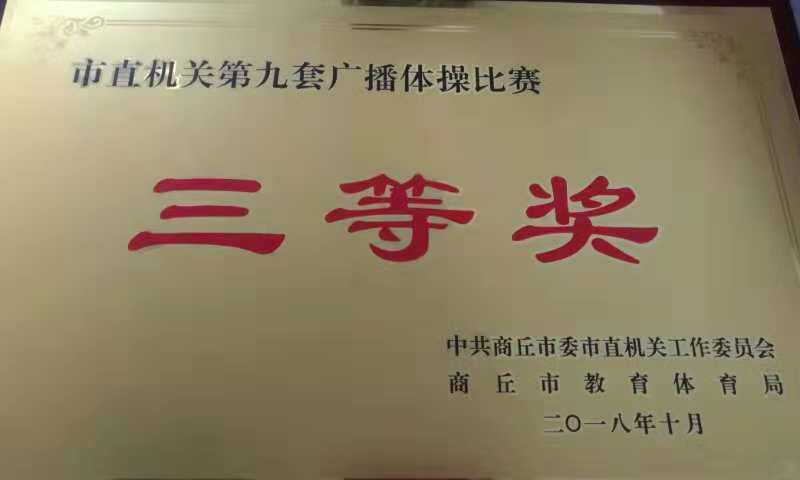 市直机关第九套广播体操比赛
三等奖
中共商丘市委市直机关工作委员会
商丘市教育体育局
二〇一八年十月